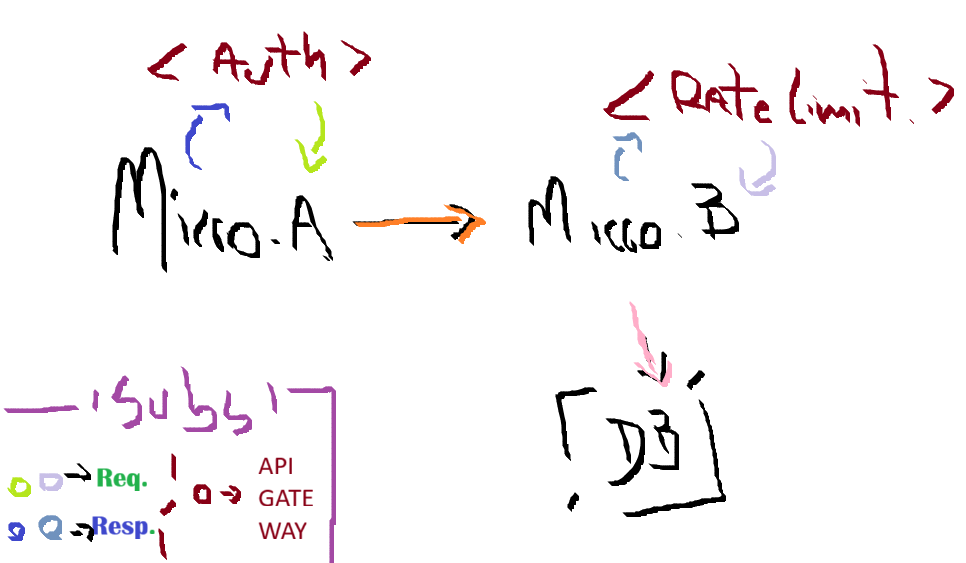 < Auth >
< Rate Limit. >
Micro.A
Micro.B
DB
Req.
Resp.
API
GATE
WAY